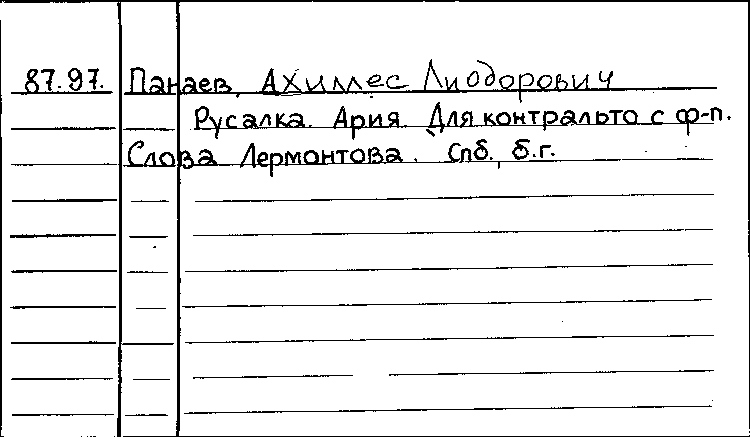 87.97. Панаев, Ахиллес Лиодорович
Русалка. Ария. Для контральто с ф-п.
Слова Лермонтова. Спб., б.г.